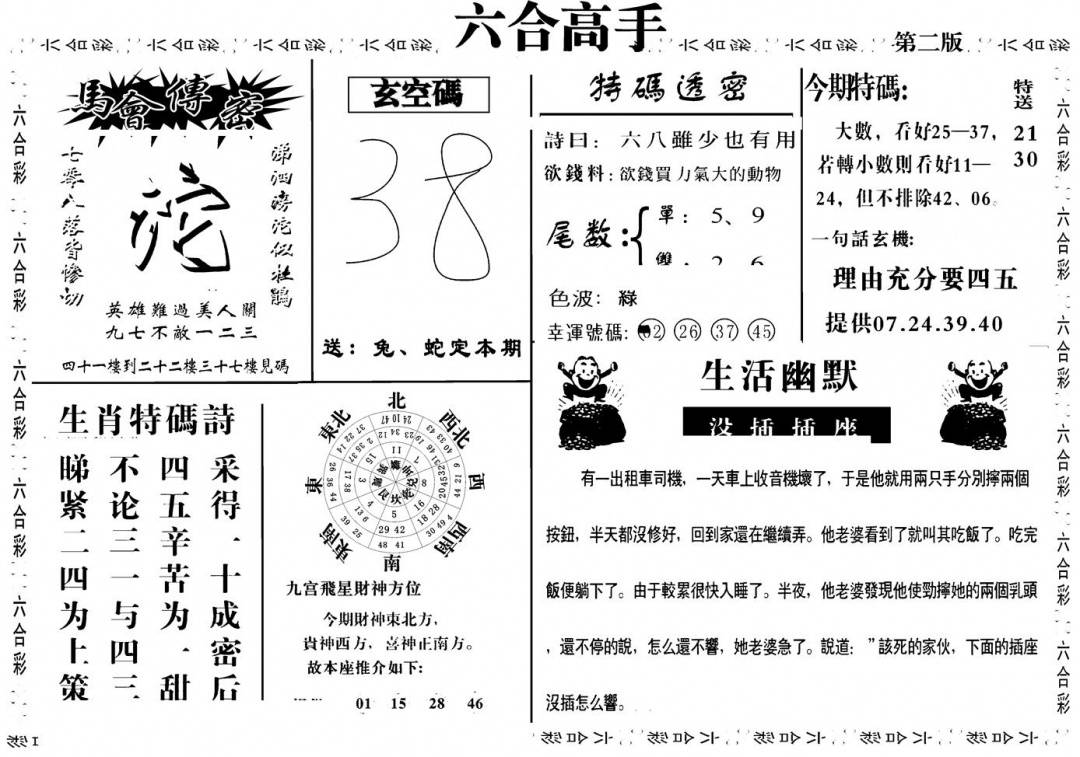 六合高手
第二版
馬會傳密
七零八落皆慘切
涕泗滂沱似杜鵑
英雄難過美人關
九七不敵一二三
四十一樓到二十二樓三十七樓見碼
玄空碼
38
送：兔、蛇定本期
特碼透密
詩曰：六八雖少也有用
欲錢料：欲錢買力氣大的動物
尾数：
單：5、9
色波：綠
幸運號碼：
26 37 45
今期特碼:
特送
21
30
大數，看好25—37，
若轉小數則看好11—
24，但不排除42、06。
一句話玄機:
理由充分要四五
提供07.24.39.40
生肖特碼詩
采得一十成密后
四五辛苦为一甜
不论三一与四三
睇紧二四为上策
北
東北
西北
東
西
東南
西南
南
九宫飛星財神方位
今期財神東北方，
貴神西方，喜神正南方。
故本座推介如下:
01 15 28 46
生活幽默
没插插座
有一出租車司機，一天車上收音機壞了，于是他就用兩只手分別擰兩個
按鈕，半天都沒修好，回到家還在繼續弄。他老婆看到了就叫其吃飯了。吃完
飯便躺下了。由于較累很快入睡了。半夜，他老婆發現他使勁擰她的兩個乳頭
，還不停的說，怎么還不響，她老婆急了。說道：”該死的家伙，下面的插座
沒插怎么響。
六合彩